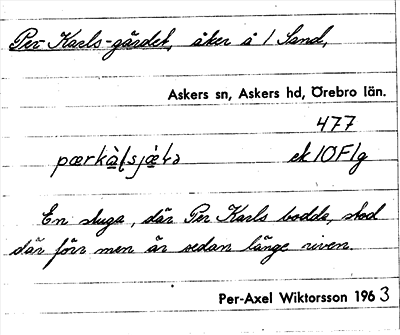 Per-Karls-gärdet, åker å 1 Sand,
Askers sn, Askers hd, Örebro län.
477
ek 10F1g
En stuga, där Per Karls bodde, stod
där förr men är sedan länge riven.
Per-Axel Wiktorsson 1963